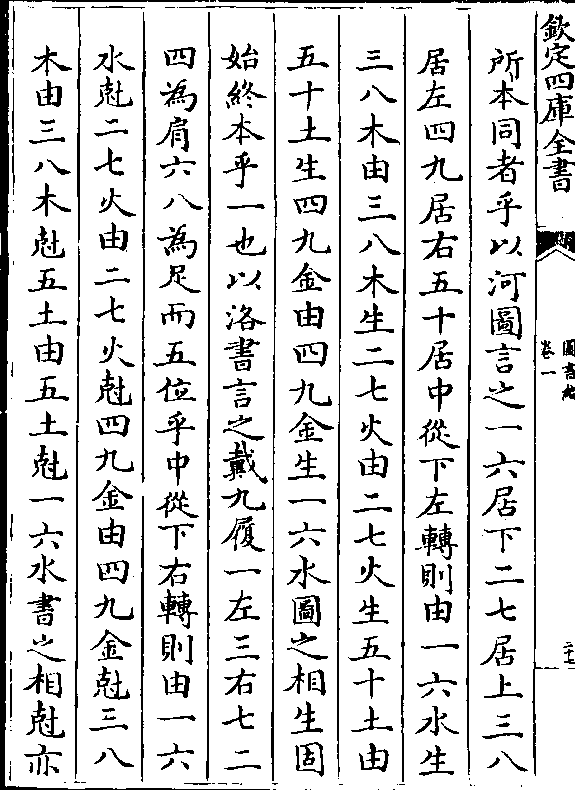 欽定四庫全書
圖書編
卷一
所本同者乎以河圖言之一六居下二七居上三八
居左四九居右五十居中從下左轉則由一六水生
三八木由三八木生二七火由二七火生五十土由
五十土生四九金由四九金生一六水圖之相生固
始終本乎一也以洛書言之戴九履一左三右七二
四為肩六八為足而五位乎中從下右轉則由一六
水尅二七火由二七火尅四九金由四九金尅三八
木由三八木尅五土由五土尅一六水書之相尅亦